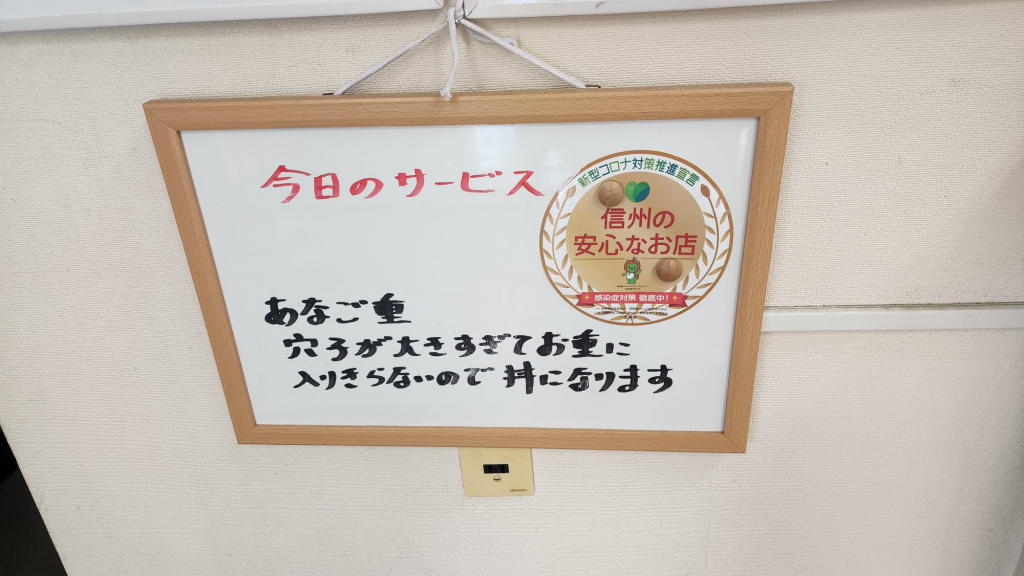 今日のサービス
新型コロナ対策推進宣言
信州の
安心なお店
感染症対策 徹底中!
あなご重
穴子が大きすぎてお重に
入りきらないので 丼になります